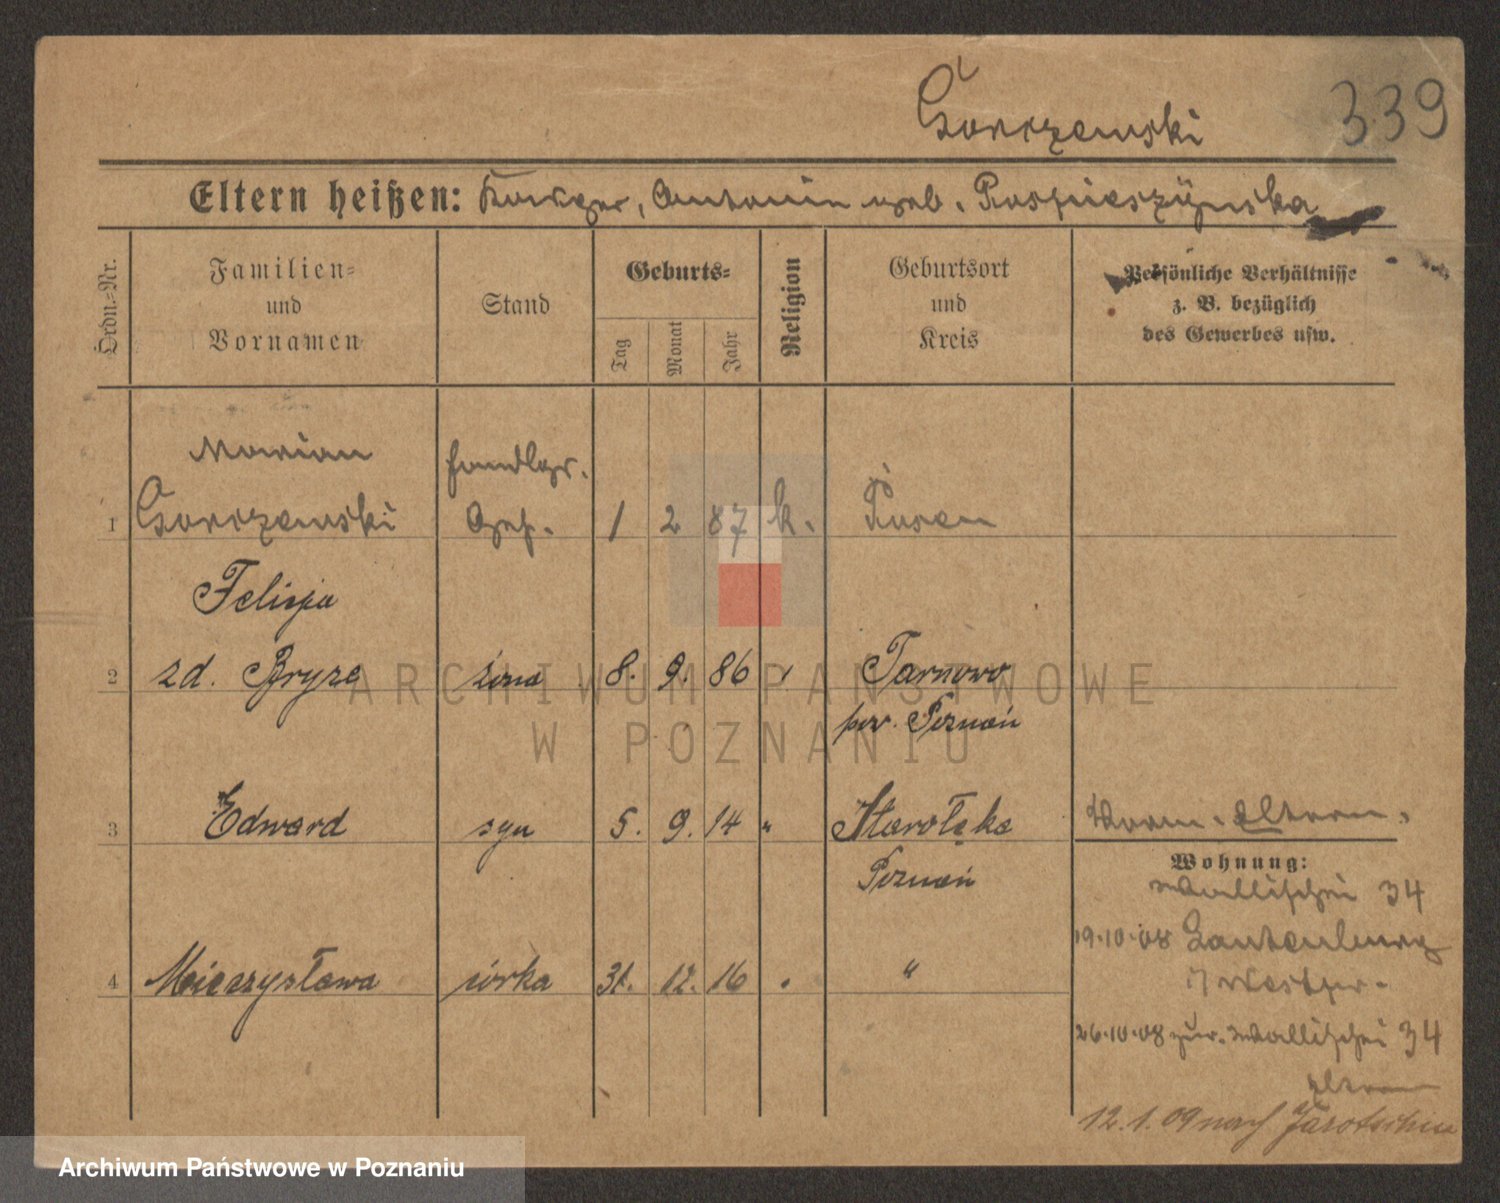 339
Gorczewski
Eltern heißen: Antonin geb. Pospieszynska
Ordn.-Nr.
Familien- und Vornamen
Stand
Geburts-
Tag
Monat
Jahr
Religion
Geburtsort und Kreis
Persönliche Verhältnisse z. B. bezüglich des Gewerbes usw.
Marian Handlgs.
1 Gorczewski Geh. 1 2 87 k. Posen
Felicja
2 zd. Bryze żona 8. 9. 86 " Tarnowo
pow. Poznań
3 Edward syn 5. 9. 14 " Starołęka
Poznań
Eltern.
Wohnung:
Wallischei 34
19.10.08 Lautenburg
Westpr.
4 Mieczysława córka 31. 12. 16 " "
26.10.08 zur. Wallischei 34
Eltern
12.1.09 nach Jarotschin
ARCHIWUM PAŃSTWOWE
W POZNANIU
Archiwum Państwowe w Poznaniu